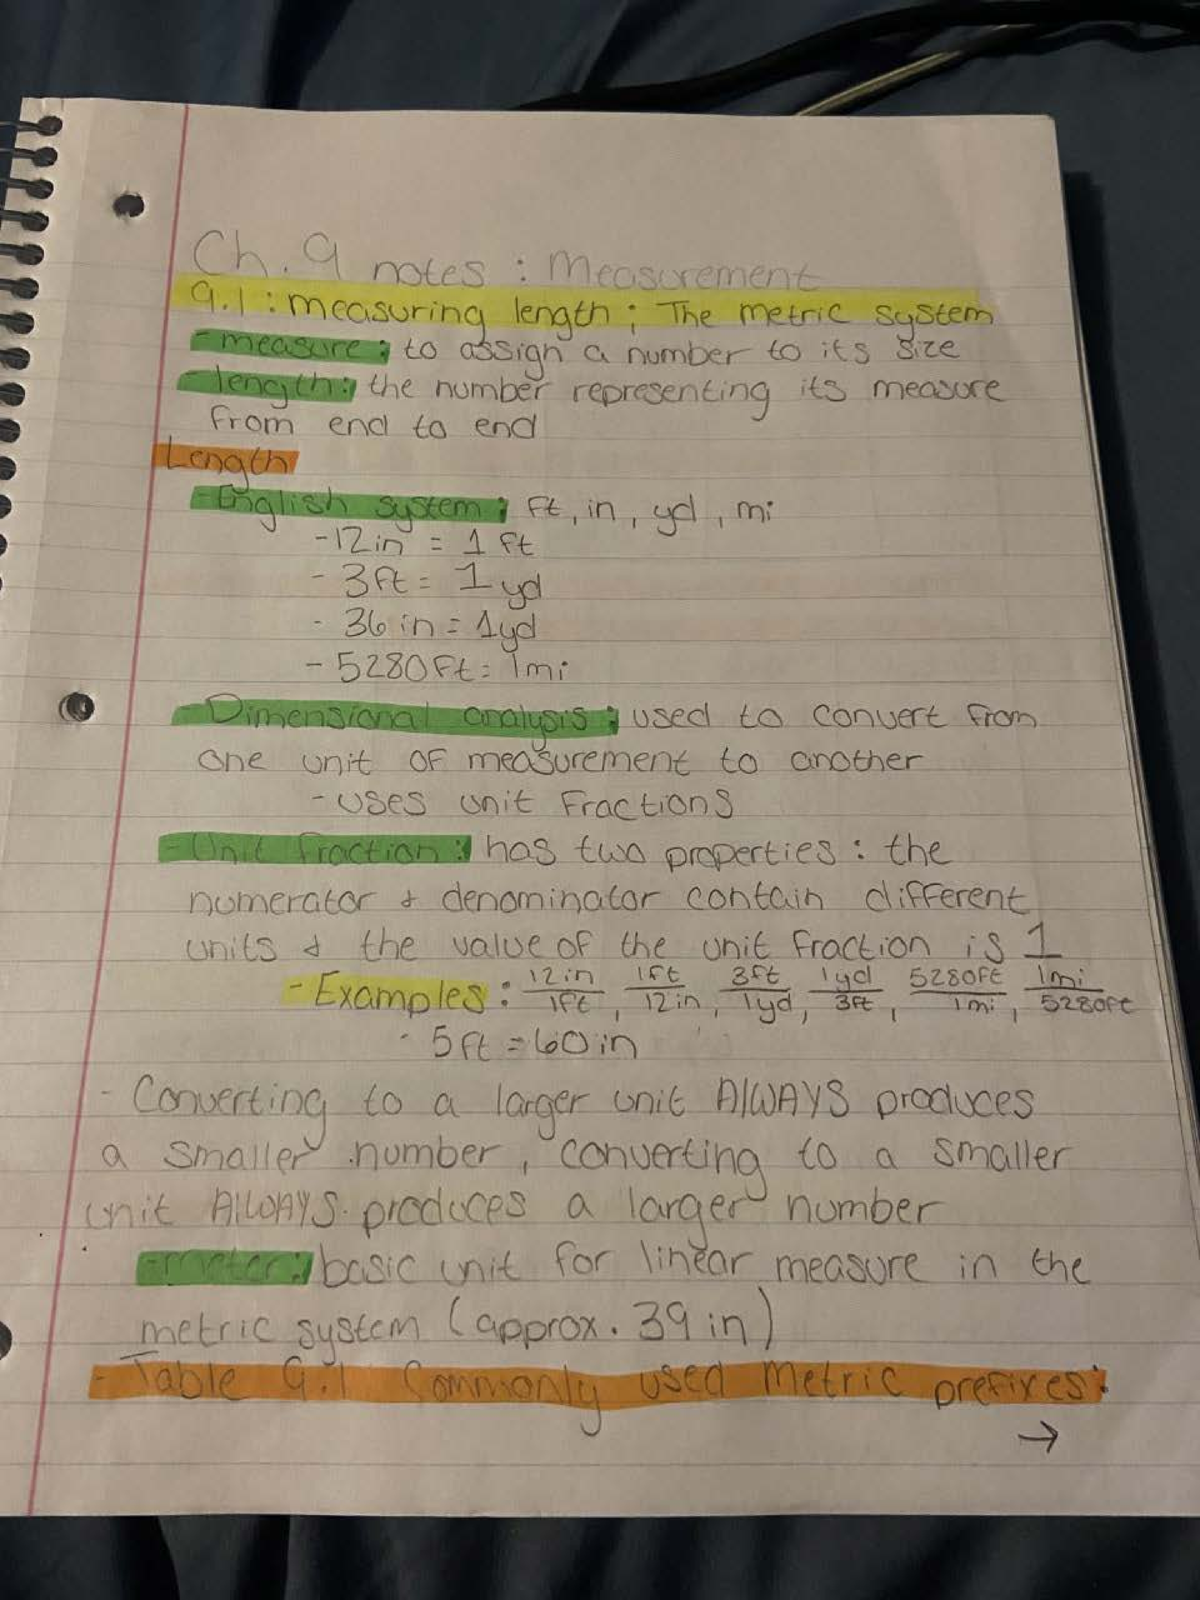 Ch. 9 notes : Measurement
9.1 : measuring length ; The metric system
- measure : to assign a number to its size
- length : the number representing its measure
from end to end
Length
- English system : ft, in, yd, mi
- 12in = 1 ft
- 3ft = 1 yd
- 36 in = 1yd
- 5280ft = 1mi
- Dimensional analysis : used to convert from
one unit of measurement to another
- uses unit fractions
- Unit fraction : has two properties : the
numerator & denominator contain different
units & the value of the unit fraction is 1
- Examples : 12in/1ft, 1ft/12in, 3ft/1yd, 1yd/3ft, 5280ft/1mi, 1mi/5280ft
- 5ft = 60in
- Converting to a larger unit AlWAYS produces
a smaller number, converting to a smaller
unit AlWAYS produces a larger number
- meter : basic unit for linear measure in the
metric system (approx. 39 in)
- Table 9.1 Commonly used metric prefixes :
→